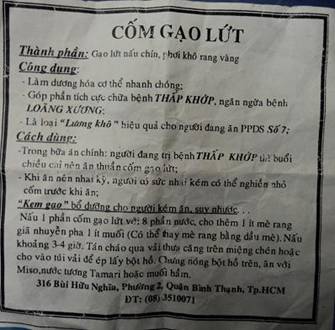 CỐM GẠO LỨT
Thành phần: Gạo lứt nấu chín, phơi khô rang vàng
Công dụng:
- Làm dương hóa cơ thể nhanh chóng;
- Góp phần tích cực chữa bệnh THẤP KHỚP, ngăn ngừa bệnh
LOÃNG XƯƠNG;
- Là loại "Lương khô" hiệu quả cho người đang ăn PPDS Số 7;
Cách dùng:
-Trong bữa ăn chính: người đang trị bệnh THẤP KHỚP thì buổi
chiều cai nên ăn thuần cốm gạo lứt;
- Khi ăn nên nhai kỹ, người có sức nhai kém có thể nghiền nhỏ
cốm trước khi ăn;
"Kem gạo" bổ dưỡng cho người kém ăn, suy nhược...
Nấu 1 phần cốm gạo lứt với 8 phần nước, cho thêm 1 ít mè rang
giã nhuyễn pha 1 ít muối (Có thể thay mè rang bằng dầu mè). Nấu
khoảng 3-4 giờ. Tán cháo qua vải thưa căng trên miệng chén hoặc
cho vào túi vải để ép lấy bột hồ. Chưng nóng bột hồ trên, ăn với
Miso, nước tương Tamari hoặc muối hầm.
316 Bùi Hữu Nghĩa, Phường 2, Quận Bình Thạnh, Tp.HCM
ĐT: (08) 3510071